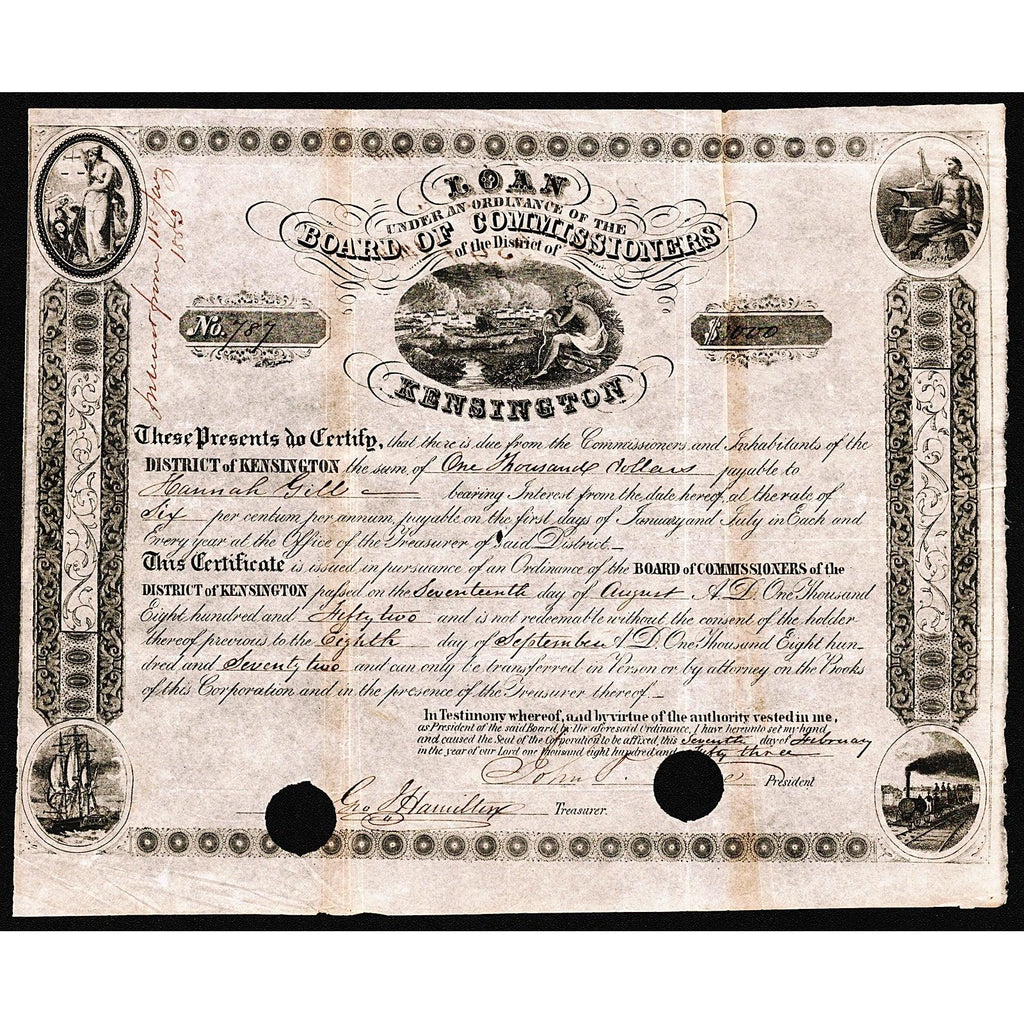 LOAN
UNDER AN ORDINANCE OF THE
BOARD OF COMMISSIONERS
of the District of
KENSINGTON
No. 787
$1000
Interest from 1st
1853
These Presents do Certify, that there is due from the Commissioners and Inhabitants of the
DISTRICT of KENSINGTON the sum of One Thousand dollars payable to
Hannah Gill bearing Interest from the date hereof, at the rate of
Six per centum per annum, payable on the first days of January and July in Each and
Every year at the Office of the Treasurer of said District.
This Certificate is issued in pursuance of an Ordinance of the BOARD of COMMISSIONERS of the
DISTRICT of KENSINGTON passed on the Seventeenth day of August A.D. One Thousand
Eight hundred and Fifty two and is not redeemable without the consent of the holder
thereof previous to the Eighth day of September A.D. One Thousand Eight hun-
dred and Seventy two and can only be transferred in Person or by attorney on the Books
of this Corporation and in the presence of the Treasurer thereof.
In Testimony whereof, and by virtue of the authority vested in me,
as President of the said Board, by the aforesaid Ordinance, I have hereunto set my hand
and caused the Seal of the Corporation to be affixed, this Seventh day of February
in the year of our Lord one thousand eight hundred and Fifty three
John President
Geo J Hamilton Treasurer.